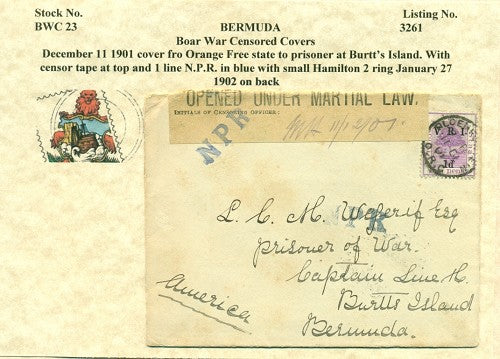 Stock No.
BWC 23
BERMUDA
Listing No.
3261
Boar War Censored Covers
December 11 1901 cover fro Orange Free state to prisoner at Burtt's Island. With
censor tape at top and 1 line N.P.R. in blue with small Hamilton 2 ring January 27
1902 on back
OPENED UNDER MARTIAL LAW.
INITIALS OF CENSORING OFFICER:
11/12/01.
NPR
V.R.I.
1d
NPR
L. C. M. Wegerif Esq
Prisoner of War.
Captain Line H.
Burtts Island
Bermuda.
America